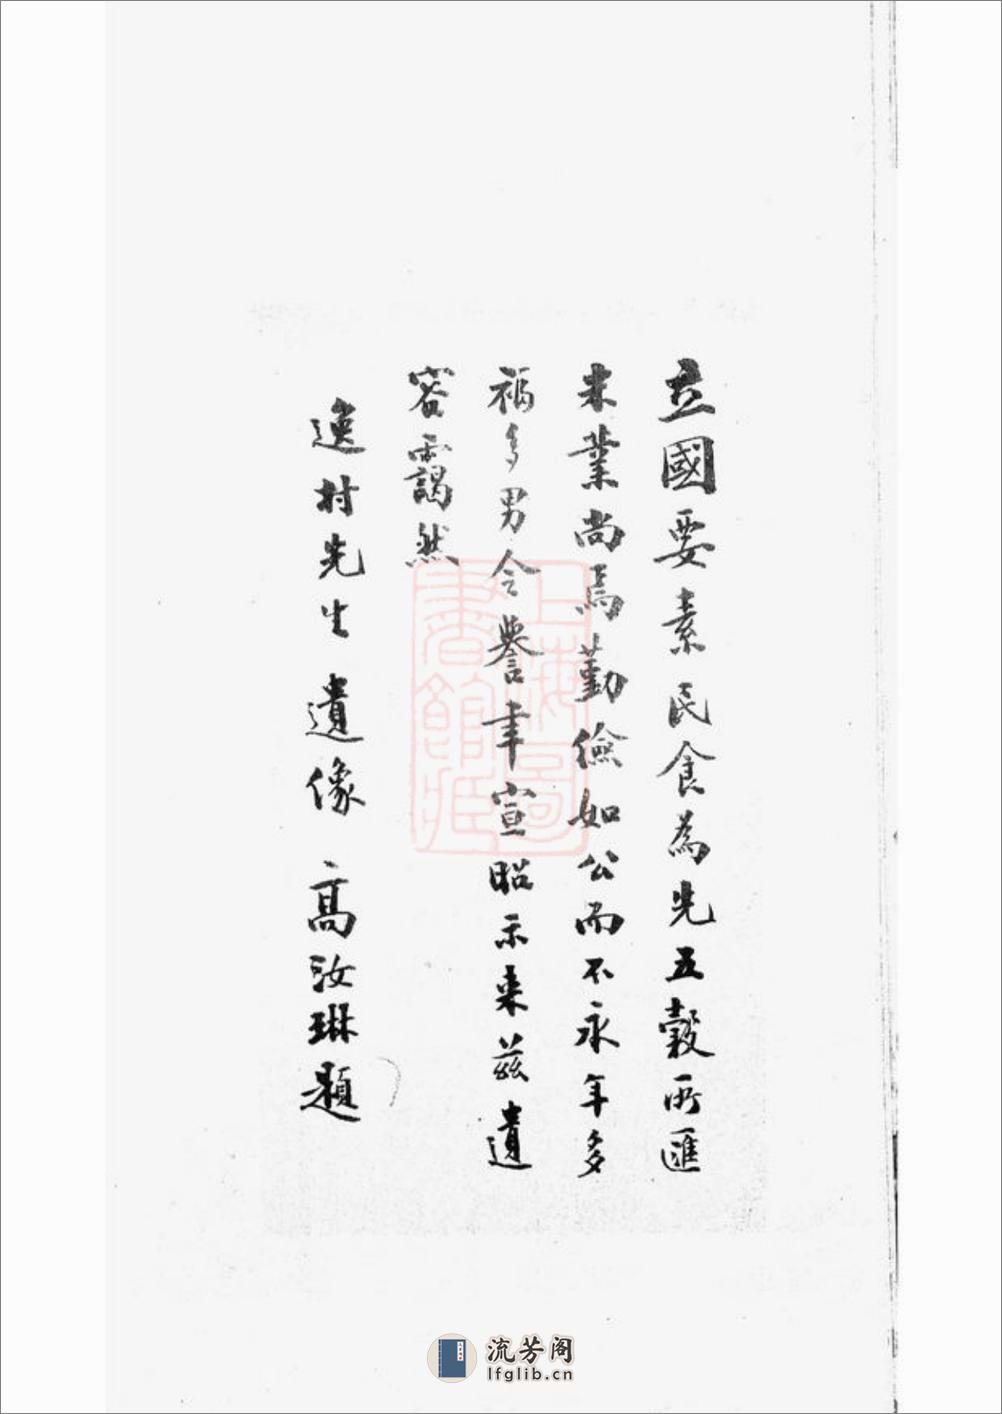 立國要素民食為先五穀所匯
米業尚焉勤儉如公而不永年多
福多男令譽聿宣昭示來茲遺
容靄然
逸村先生遺像 高汝琳題
上海圖
書館藏
流芳阁
lfglib.cn